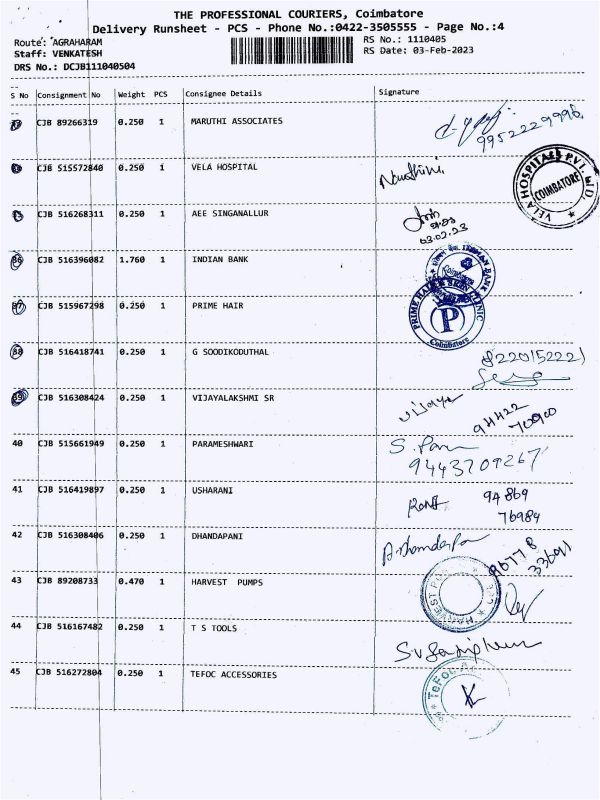 THE PROFESSIONAL COURIERS, Coimbatore
Delivery Runsheet - PCS - Phone No.:0422-3505555 - Page No.:4
Route: AGRAHARAM
RS No.: 1110405
Staff: VENKATESH
RS Date: 03-Feb-2023
DRS No.: DCJB111040504
S No Consignment No Weight PCS Consignee Details Signature
CJB 89266319 0.250 1 MARUTHI ASSOCIATES
9952229996
CJB 515572840 0.250 1 VELA HOSPITAL
VELA HOSPITAL PVT. LTD. COIMBATORE
CJB 516268311 0.250 1 AEE SINGANALLUR
03.02.23
36 CJB 516396082 1.760 1 INDIAN BANK
INDIAN BANK
37 CJB 515967298 0.250 1 PRIME HAIR
PRIME HAIR & SKIN CLINIC P Coimbatore
38 CJB 516418741 0.250 1 G SOODIKODUTHAL
8220152221
39 CJB 516308424 0.250 1 VIJAYALAKSHMI SR
Vijaya 94422
70900
40 CJB 515661949 0.250 1 PARAMESHWARI
9443709267
41 CJB 516419897 0.250 1 USHARANI
94869
76984
42 CJB 516308406 0.250 1 DHANDAPANI
43 CJB 89208733 0.470 1 HARVEST PUMPS
HARVEST
44 CJB 516167482 0.250 1 T S TOOLS
45 CJB 516272804 0.250 1 TEFOC ACCESSORIES
TeFoc